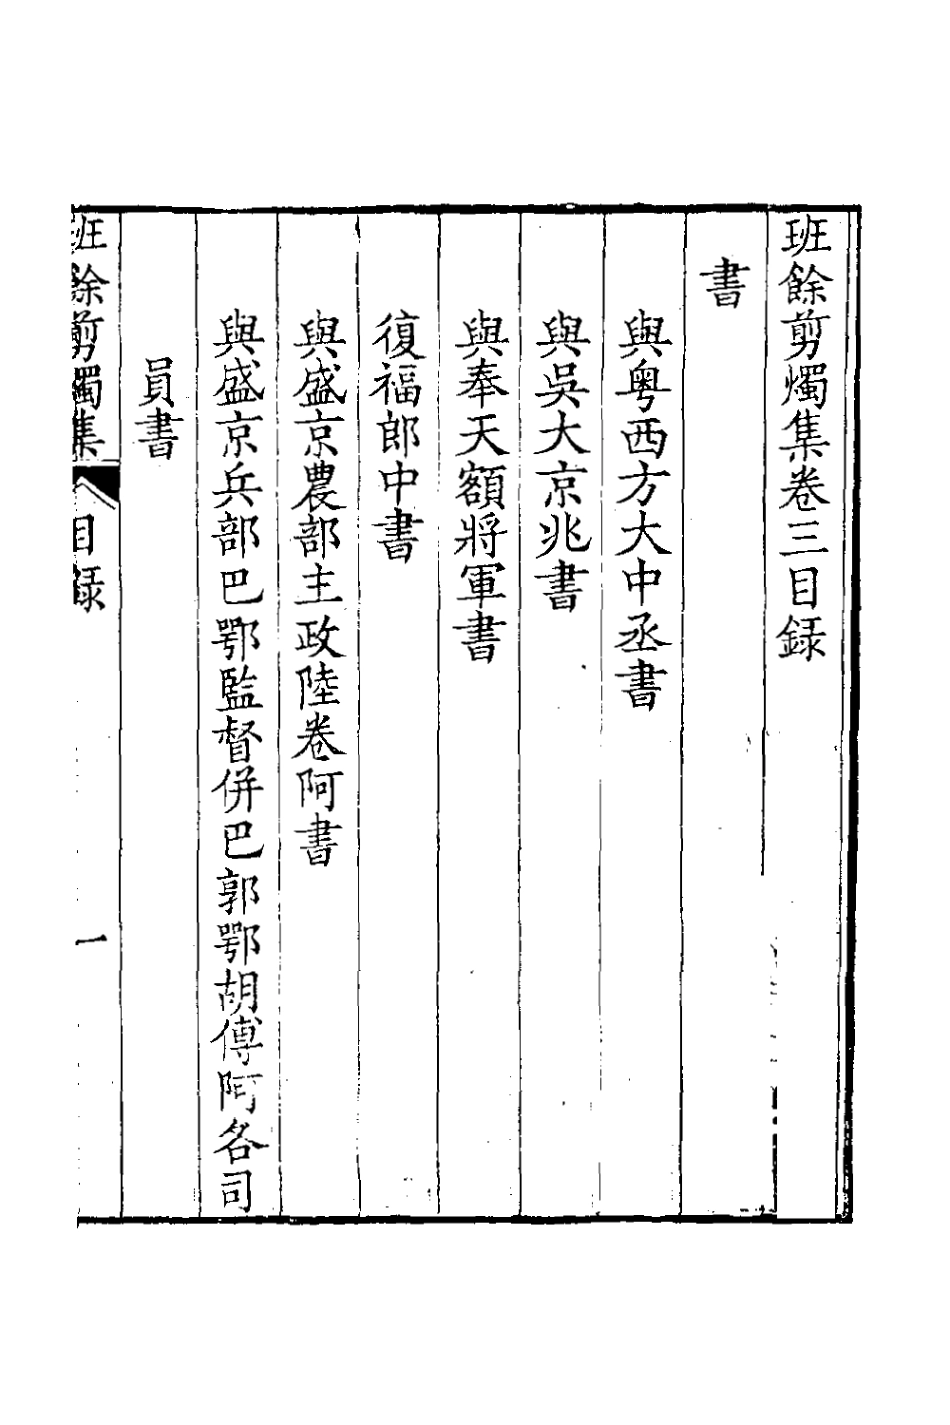 班餘剪燭集卷三目録
書
與粤西方大中丞書
與吳大京兆書
與奉天額將軍書
復福郎中書
與盛京農部主政陸卷阿書
與盛京兵部巴鄂監督併巴郭鄂胡傅阿各司
員書
班餘剪燭集
目録
一